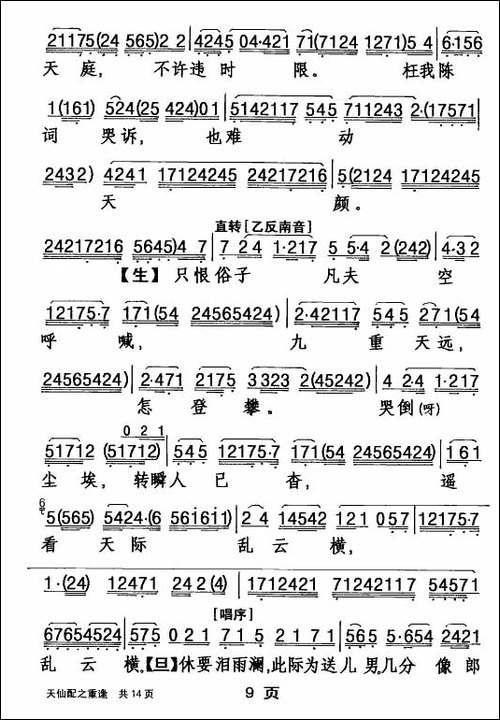 21175(24 565)2 2 | 4245 04·421 71(7124 1271)5 4 | 6·156
天庭， 不许违时 限。 枉我陈
1(161) 524(25 424)01 | 5142117 545 711243 2·(17571
词 哭诉， 也难 动
2432) 4241 17124245 24217216 | 5(2124 17124245
天 颜。
直转[乙反南音]
24217216 5645)4 7 | 7 24 1·217 5 5·4 2 (242) | 4·32
【生】只恨俗子 凡夫 空
12175·7 171(54 24565424) | 2·42117 545 271(54
呼 喊， 九 重天远，
24565424) | 2·471 2175 3323 2(45242) | 4 2·4 1·217
怎登攀。 哭倒(呀)
0 2 1
51712 (51712) | 545 12175·7 171(54 24565424) | 161
尘埃， 转瞬人 已 杳， 遥
6
5(565) 5424·(6 561611) | 24 14542 121 057 | 12175·7
看 天际 乱云横，
1·(24) 12471 242(4) | 1712421 71242117 54571
[唱序]
67654524 | 575 021 715 5 217 | 565 5·654 2421
乱 云 横，【旦】休要泪雨澜，此际为送儿 男，几分 像 郎
天仙配之重逢 共14页 9 页